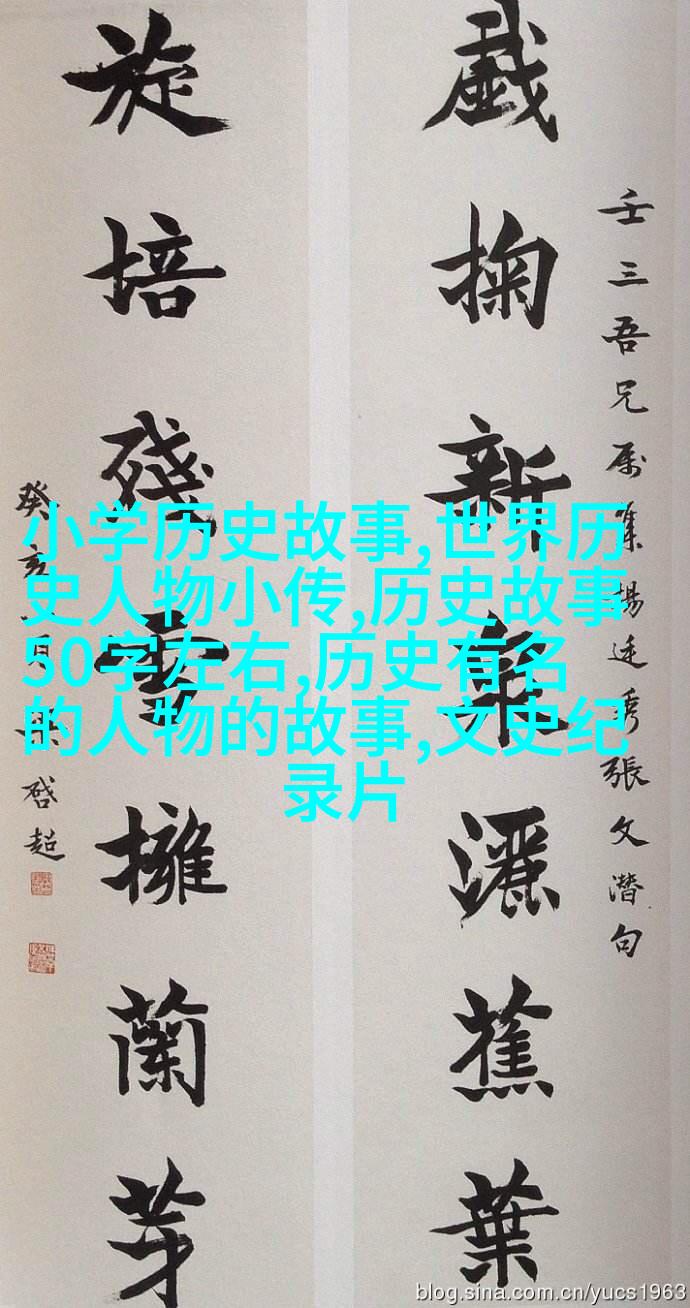 壬三吾兄属集楊廷秀張文潛句
戲掬新泉灑蕉葉
旋培殘雪擁蘭芽
癸亥月梁啓超
小学历史故事,世界历
史人物小传,历史故事
50字左右,历史有名
的人物的故事,文史纪
录片
blog.sina.com.cn/yucs1963